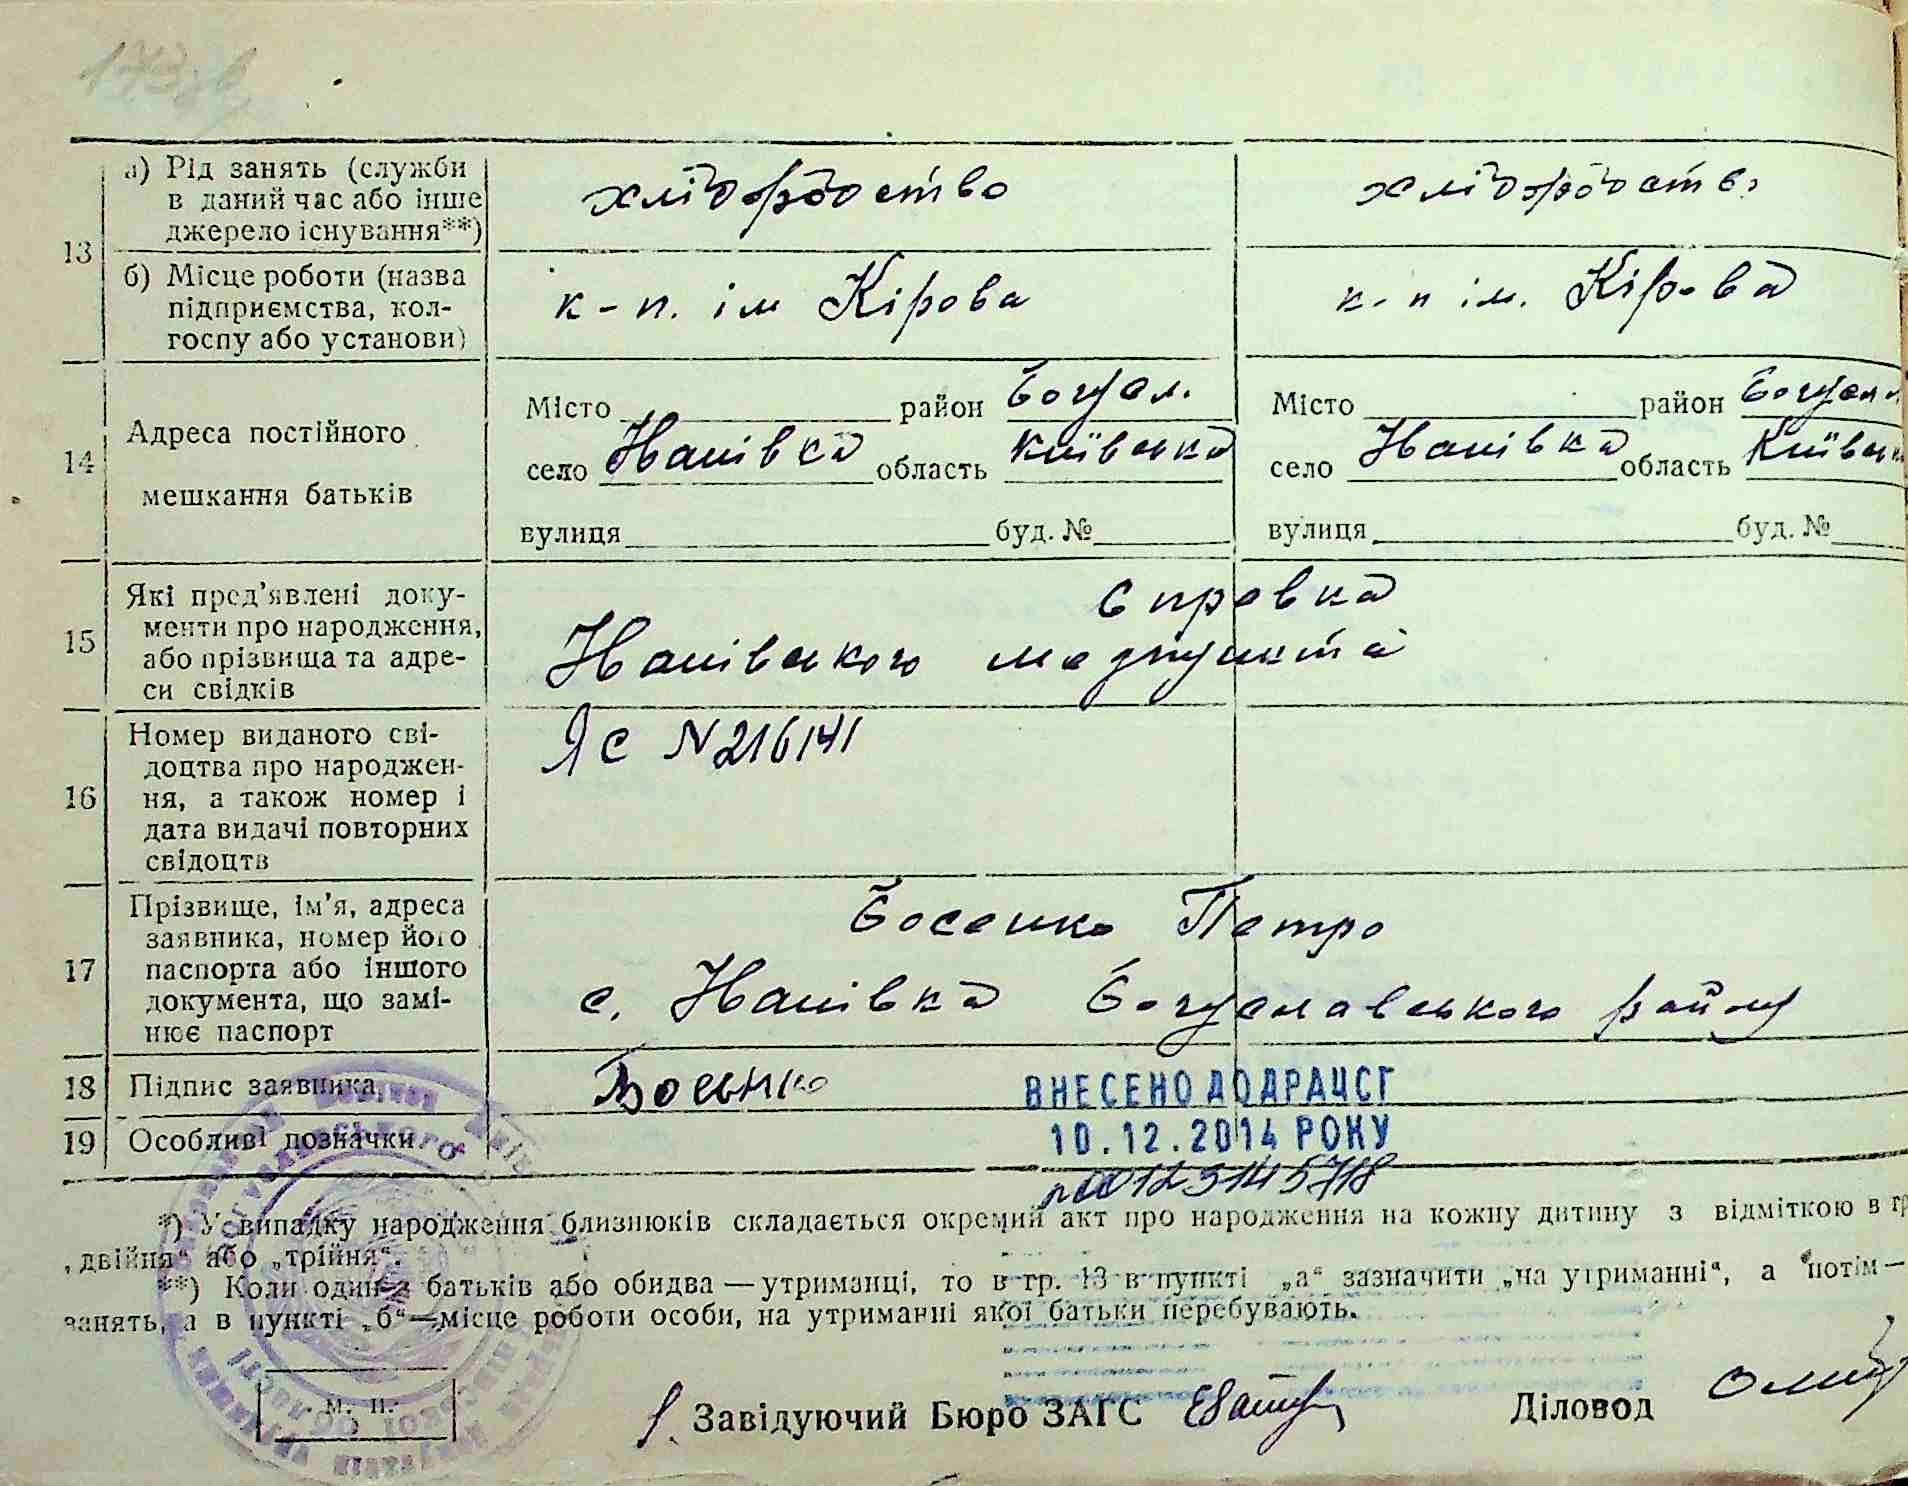 173
13
а) Рід занять (служби в даний час або інше джерело існування**)
хліборобство
хліборобство
б) Місце роботи (назва підприємства, колгоспу або установи)
к-п. ім Кірова
к-п ім. Кірова
14
Адреса постійного мешкання батьків
Місто район Богусл.
село Іванівка область Київська
вулиця буд. №
Місто район Богусл
село Іванівка область Київська
вулиця буд. №
15
Які пред’явлені доку-
менти про народження,
або прізвища та адре-
си свідків
Справка
Іванівського медпункта
16
Номер виданого сві-
доцтва про народжен-
ня, а також номер і
дата видачі повторних
свідоцтв
ЯС N216141
17
Прізвище, ім’я, адреса
заявника, номер його
паспорта або іншого
документа, що замі-
нює паспорт
Босенко Петро
с. Іванівка Богуславського району
18
Підпис заявника
Босенко
ВНЕСЕНО ДО ДРАЦСГ
10.12.2014 РОКУ
19
Особливі позначки
*) У випадку народження близнюків складається окремий акт про народження на кожну дитину з відміткою в гр
„двійня“ або „трійня“.
**) Коли один з батьків або обидва — утриманці, то в гр. 13 в пункті „а“ зазначити „на утриманні“, а потім —
занять, а в пункті „б“—місце роботи особи, на утриманні якої батьки перебувають.
М. П.
Завідуючий Бюро ЗАГС
Діловод